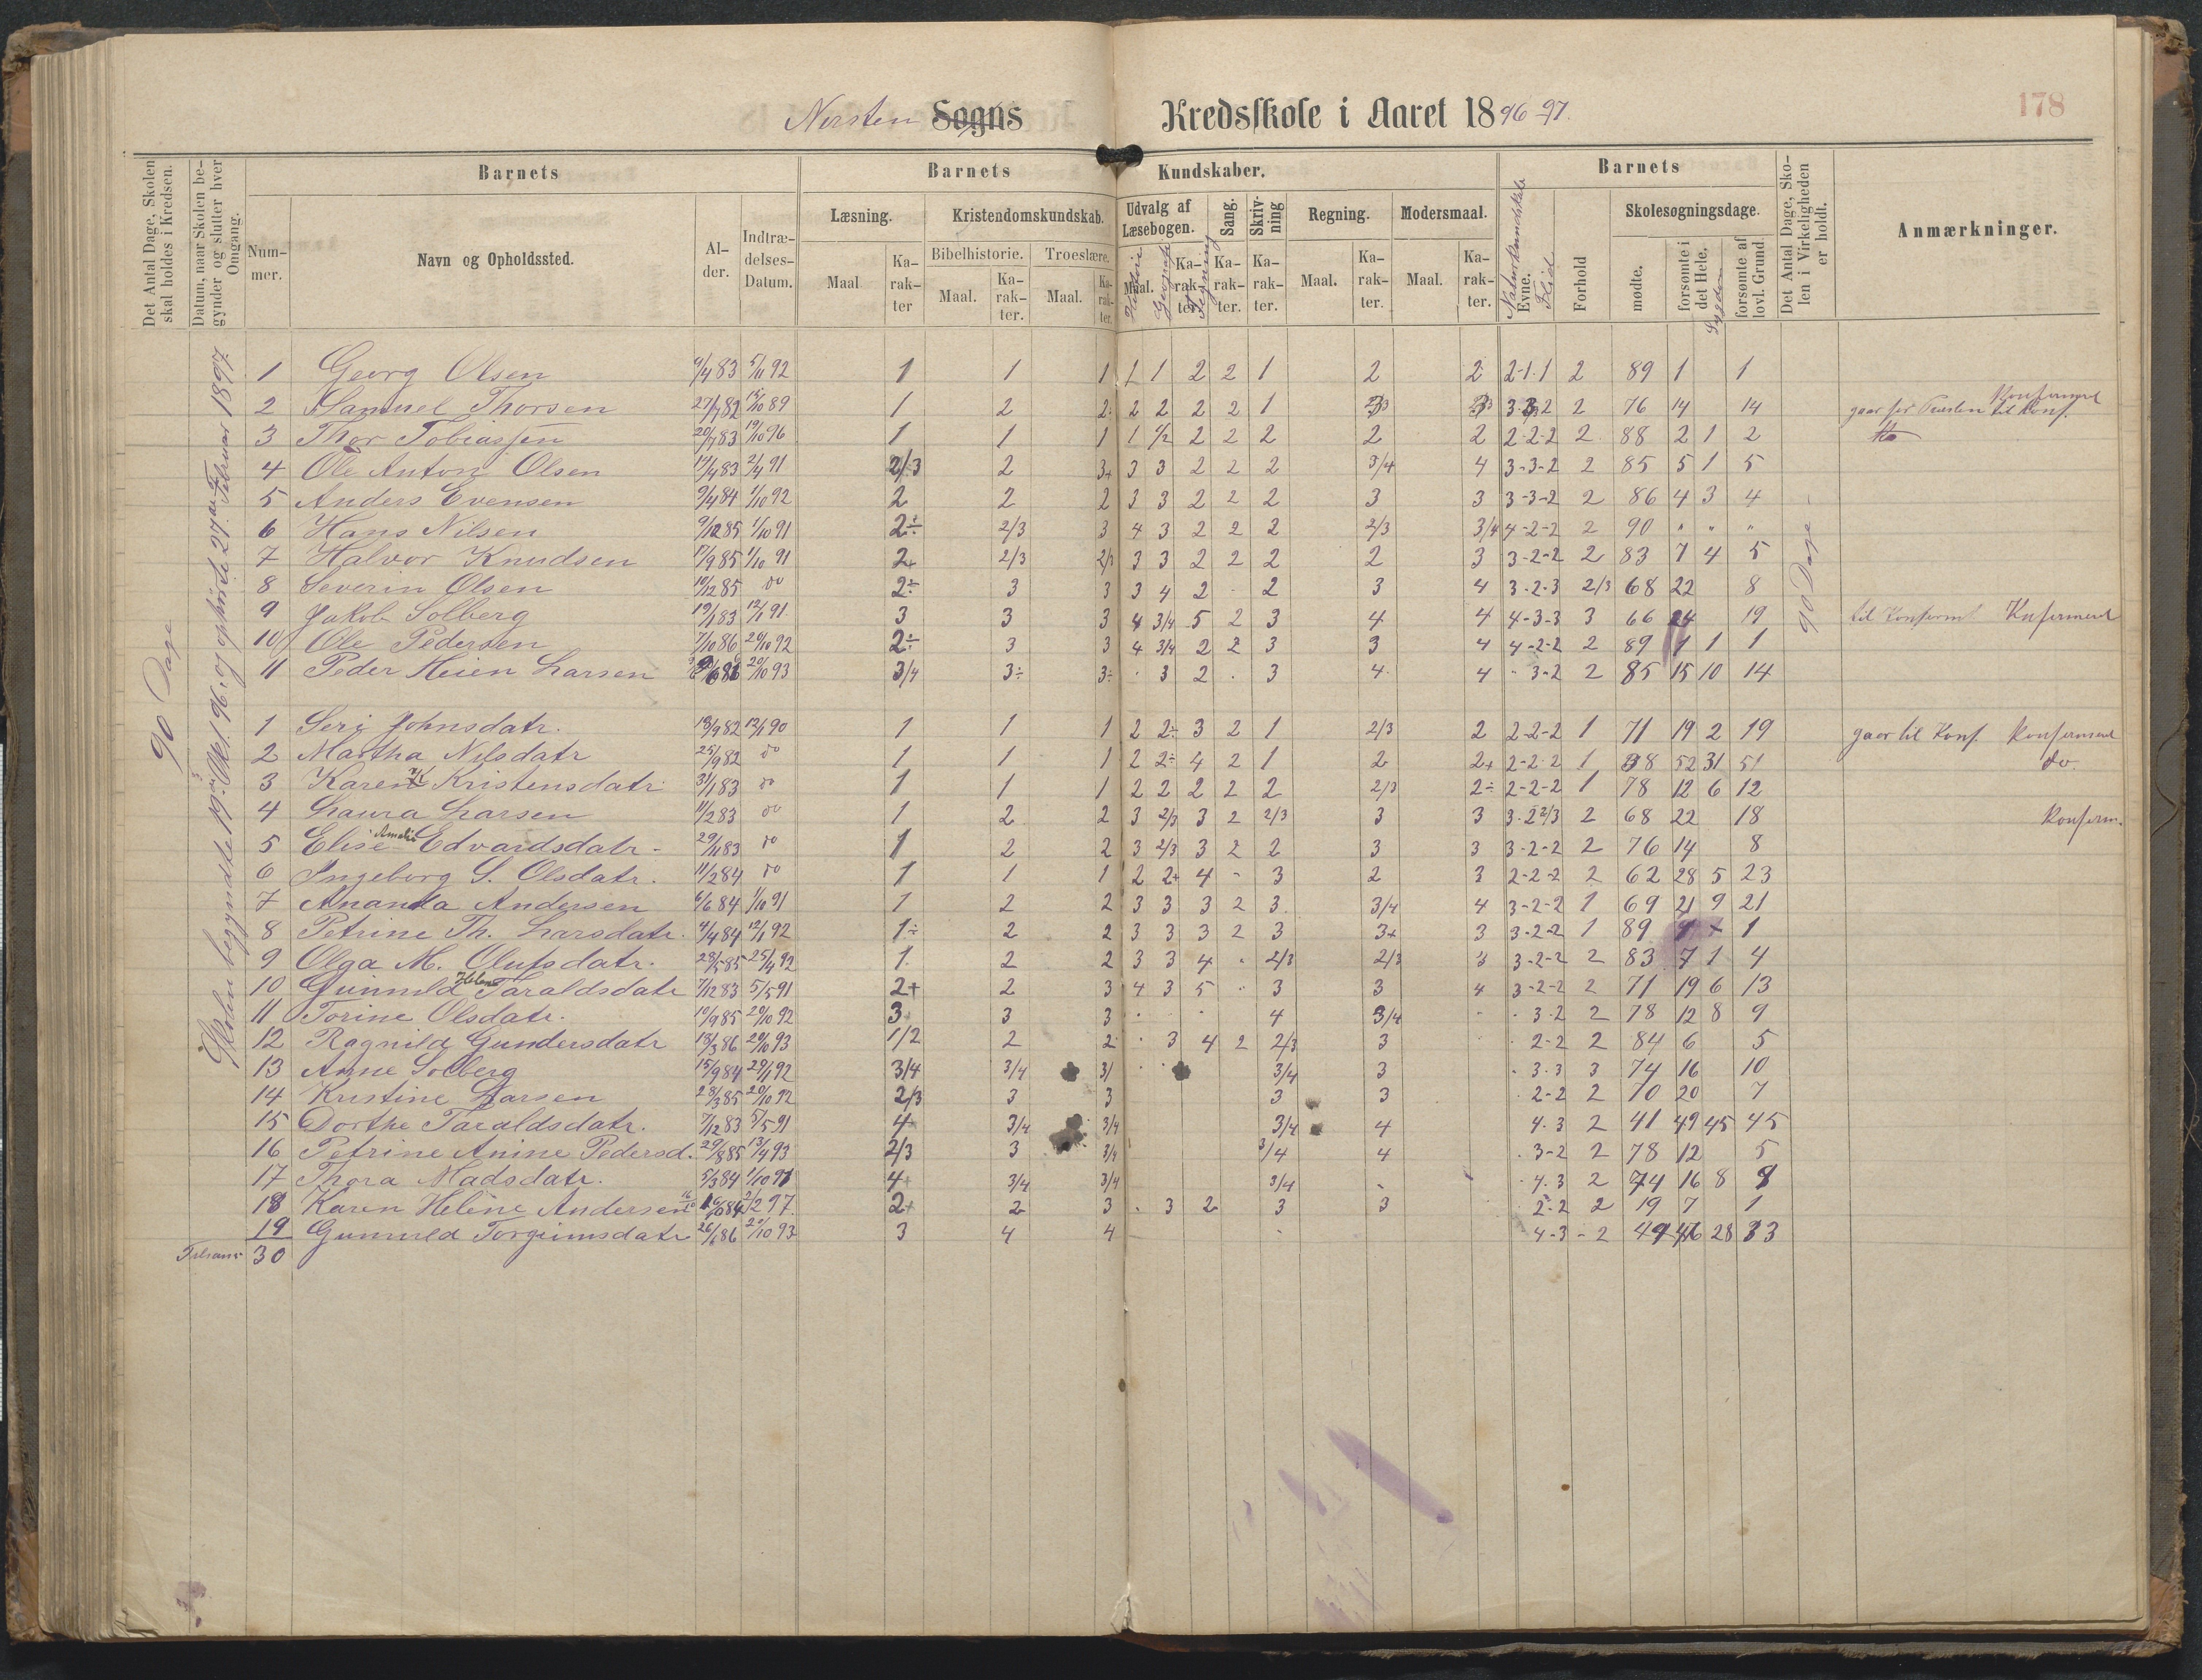 Nersten Sogns Kredsskole i Aaret 1896-97.
178
Det Antal Dage, Skolen skal holdes i Kredsen.
Datum, naar Skolen begynder og slutter hver Omgang.
Barnets
Nummer.
Navn og Opholdssted.
Alder.
Indtrædelses-Datum.
Barnets Kundskaber.
Læsning.
Maal
Karakter
Kristendomskundskab.
Bibelhistorie.
Maal.
Karakter.
Troeslære.
Maal.
Karakter.
Udvalg af Læsebogen.
Maal.
Historie
Geografi
Karakter
Tegning
Sang.
Karakter.
Skrivning
Karakter.
Regning.
Maal.
Karakter.
Modersmaal.
Maal.
Karakter.
Barnets
Naturkundskab
Evne.
Flid
Forhold
Skolesøgningsdage.
mødte.
forsømte i det Hele.
Sygdom
forsømte af lovl. Grund
Det Antal Dage, Skolen i Virkeligheden er holdt.
Anmærkninger.
90 Dage
Skolen begyndte 19de Okt. 96. og ophørte 27de Februar 1897.
90 Dage
1 Georg Olsen 9/4 83 5/11 92 1 1 1 1 1 2 2 1 2 2 2-1-1 2 89 1 1
2 Samuel Thorsen 27/7 82 12/10 89 1 2 2 2 2 2 2 1 3 3 3-3-2 2 76 14 14 gaar for Præsten til Konf. Konfirmert
3 Thor Tobiassen 20/7 83 19/10 96 1 1 1 1 1/2 2 2 2 2 2 2-2-2 2 88 2 1 2
4 Ole Anton Olsen 14/4 83 2/4 91 2/3 2 3+ 3 3 2 2 2 3/4 4 3-3-2 2 85 5 1 5
5 Anders Evensen 9/4 84 1/10 92 2 2 2 3 3 2 2 2 3 3 3-3-2 2 86 4 3 4
6 Hans Nilsen 9/12 85 1/10 91 2÷ 2/3 3 4 3 2 2 2 2/3 3/4 4-2-2 2 90 " " "
7 Halvor Knudsen 17/9 85 1/10 91 2+ 2/3 2/3 3 3 2 2 2 2 3 3-2-2 2 83 7 4 5
8 Severin Olsen 10/12 85 do 2÷ 3 3 3 4 2 · 2 3 4 3-2-3 2/3 68 22 8
9 Jakob Solberg 19/1 83 12/1 91 3 3 3 4 3/4 5 2 3 4 4 4-3-3 3 66 24 19 til Konfirmt Knfirmert
10 Ole Pedersen 7/10 86 20/10 92 2÷ 3 3 4 3/4 2 2 3 3 4 4-2-2 2 89 1 1 1
11 Peder Heien Larsen 86 20/10 93 3/4 3÷ 3÷ · 3 2 · 3 4 4 · 3-2 2 85 15 10 14
1 Seri Johnsdatr. 18/9 82 12/1 90 1 1 1 2 2÷ 3 2 1 2/3 2 2-2-2 1 71 19 2 19 gaar til Konf. Konfirmert
2 Martha Nilsdatr 25/9 82 do 1 1 1 2 2÷ 4 2 1 2 2+ 2-2-2 1 38 52 31 51 do.
3 Karen K Kristensdatr 31/1 83 do 1 1 1 2 2 2 2 2 2/3 2÷ 2-2-2 1 78 12 6 12
4 Laura Larsen 11/2 83 do 1 2 2 3 2/3 3 2 2/3 3 3 3-2 2/3 2 68 22 18 Konfirm.
5 Elise Amalie Edvardsdatr- 29/11 83 do 1 2 2 3 2/3 3 2 2 3 3 3-2-2 2 76 14 8
6 Ingeborg S. Olsdatr. 11/2 84 do 1 1 1 2 2+ 4 - 3 2 3 2-2-2 2 62 28 5 23
7 Ananda Andersen 6/6 84 1/10 91 1 2 2 3 3 3 2 3 3/4 4 3-2-2 1 69 21 9 21
8 Petrine Th. Larsdatr. 9/4 84 12/1 92 1÷ 2 2 3 3 3 2 3 3+ 3 3-2-2 1 89 1 + 1
9 Olga M. Olufsdatr. 28/5 85 25/4 92 1 2 2 3 3 4 · 2/3 2/3 3 3-2-2 2 83 7 1 4
10 Gunnild Helene Taraldsdatr 7/12 83 5/5 91 2+ 2 3 4 3 5 · 3 3 4 3-2-2 2 71 19 6 13
11 Torine Olsdatr. 10/9 85 20/10 92 3 3 3 · · 4 3/4 · · 3-2 2 78 12 8 9
12 Ragnild Gundersdatr 18/3 86 20/10 93 1/2 2 2 · 3 4 2 2/3 3 · 2-2 2 84 6 5
13 Anne Solberg 15/9 84 29/1 92 3/4 3/4 3/ · 3/4 3 · 3-3 3 74 16 10
14 Kristine Larsen 28/3 85 20/10 92 2/3 3 3 3 3 · 2-2 2 70 20 7
15 Dorthe Taraldsdatr. 7/12 83 5/5 91 4 3/4 3/4 3/4 4 4-3 2 41 49 45 45
16 Petrine Anine Pedersd. 29/8 85 13/4 93 2/3 3 3/4 3/4 4 · 3-2 2 78 12 5
17 Thora Madsdatr. 5/3 84 1/10 91 4+ 3/4 3/4 3/4 - · 4-3 2 74 16 8 8
18 Karen Heline Andersen 16/10 84 2/2 97 2+ 2 3 · 3 2 3 3 2-2 2 19 7 1
19 Gunnild Torgrimsdatr 26/6 86 20/10 93 3 4 4 · 4-3 - 2 49 46 28 33
Tilsam: 30